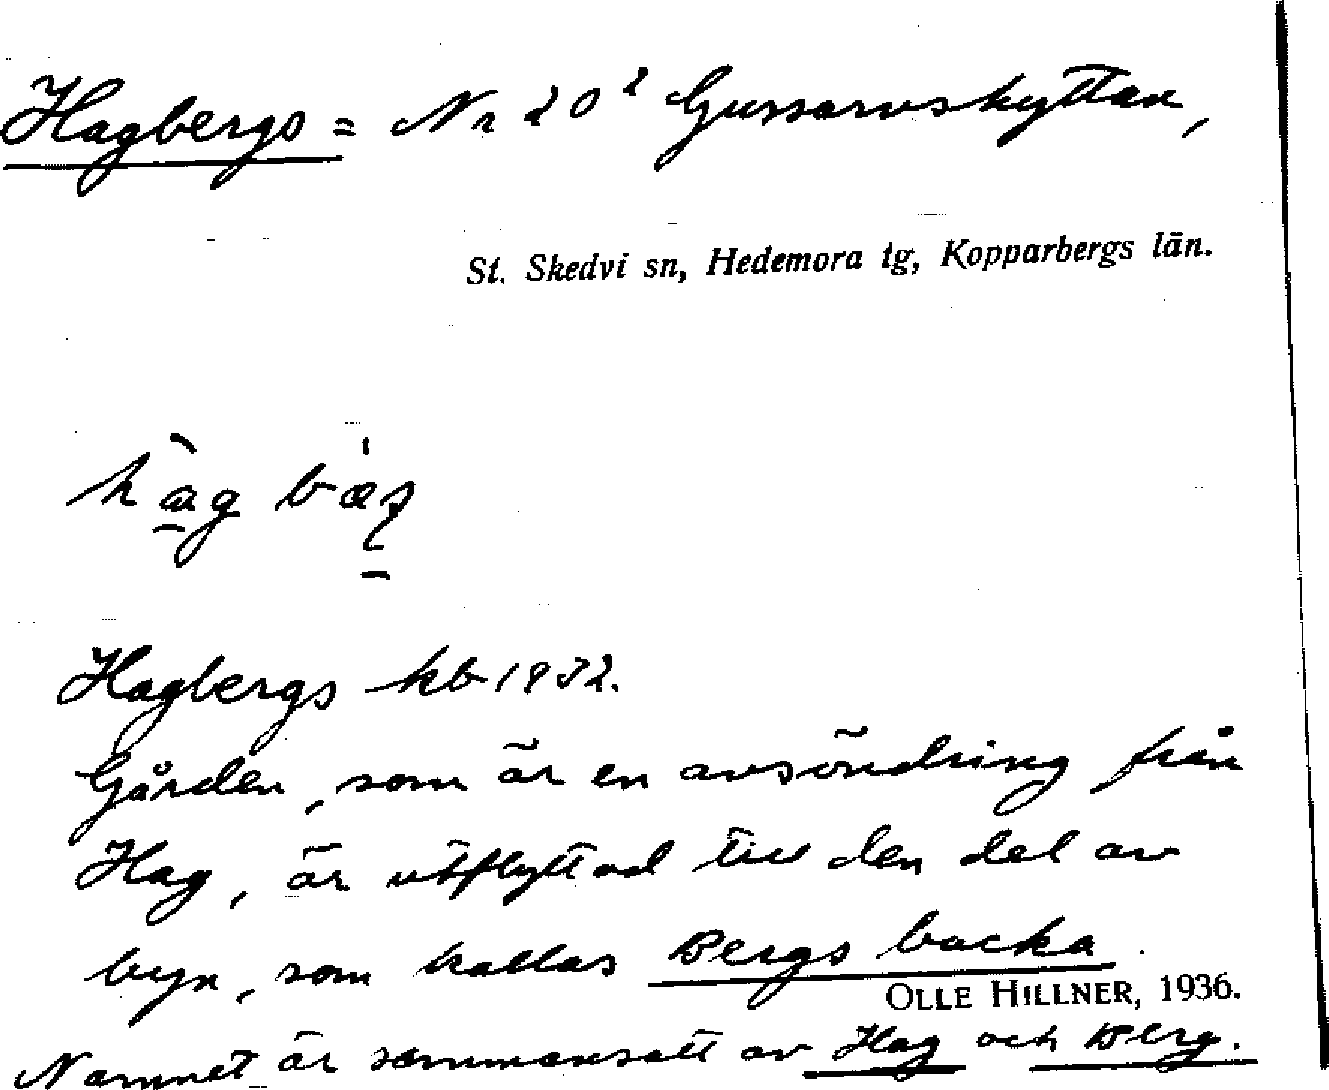 Hagbergs = Nr 20² Gussarvshyttan,
St. Skedvi sn, Hedemora tg, Kopparbergs län.
Hagbergs kb 1932.
Gården, som är en avsöndring från
Hag, är utflyttad till den del av
byn, som kallas Bergs backa.
OLLE HILLNER, 1936.
Namnet är sammansatt av Hag och Berg.